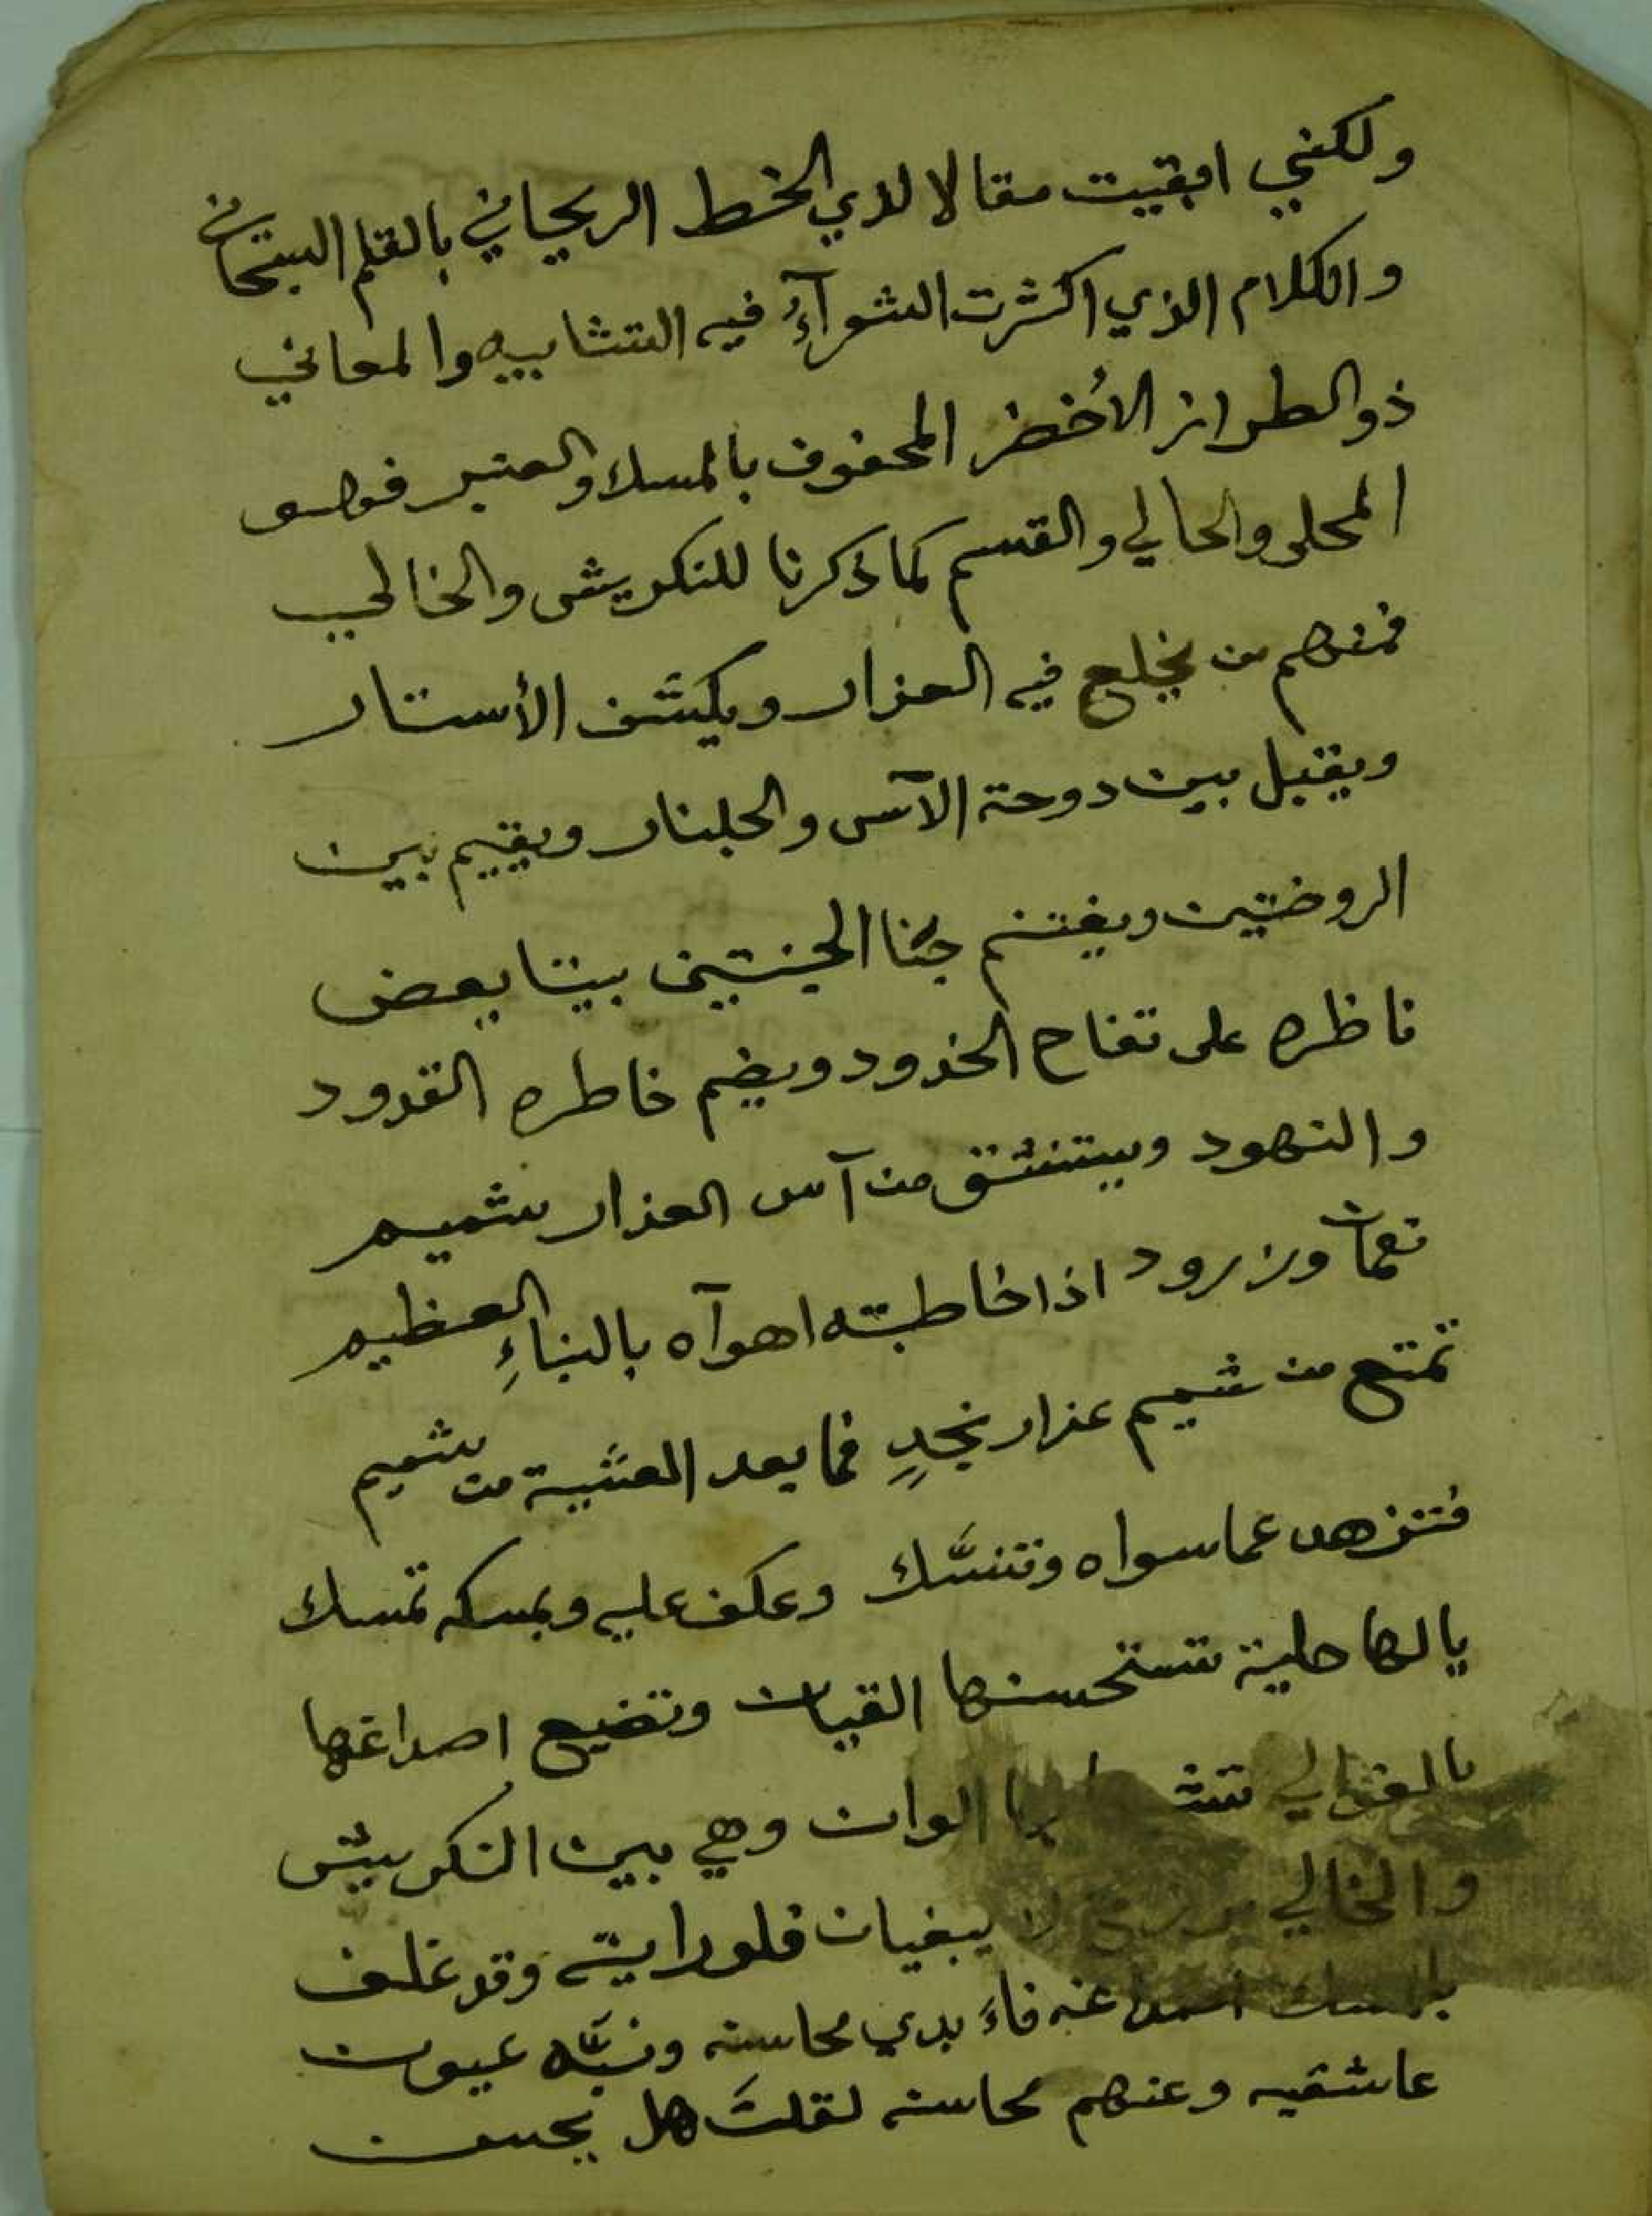 ولكنني ابقيت مقالا لذي الخط الريحاني بالقلم
والكلام الذي اكثرت الشعرآءُ فيه التشابيه والمعاني
ذو الطراز الأخضر المحفوف بالمسك والعنبر فهو
المحلى والحالي والقسم كما ذكرنا للنكريش والخالي
فمنهم من يخلع فيه العذار ويكشف الأستار
ويقبل بين دوحة الآس والجلنار ويقيم بين
الروضتين ويغتنم جنا الجنتين بينا يعض
ناظره على تفاح الخدود ويضم خاطره القدود
والنهود ويستنشق من آس العذار شميم
نعمان وزرود اذا خاطبته اهوآه بالنباءِ العظيم
تمتع من شميم عذار نجدٍ فما بعد العشية من شميم
فتزهد عما سواه وتنسَّك وعكف عليه وبمسكه تمسك
يا لها حلية تستحسنها القيان وتضيع اصداغها
بالغوالي الوان وهي بين النكريش
والخالي لا يبغيان فلو رايته وقد غلف
بالمسك عنه فاءَ بدي محاسنه ونبَّه عيون
عاشقيه وعنهم محاسنه لقلتَ هل يحسن